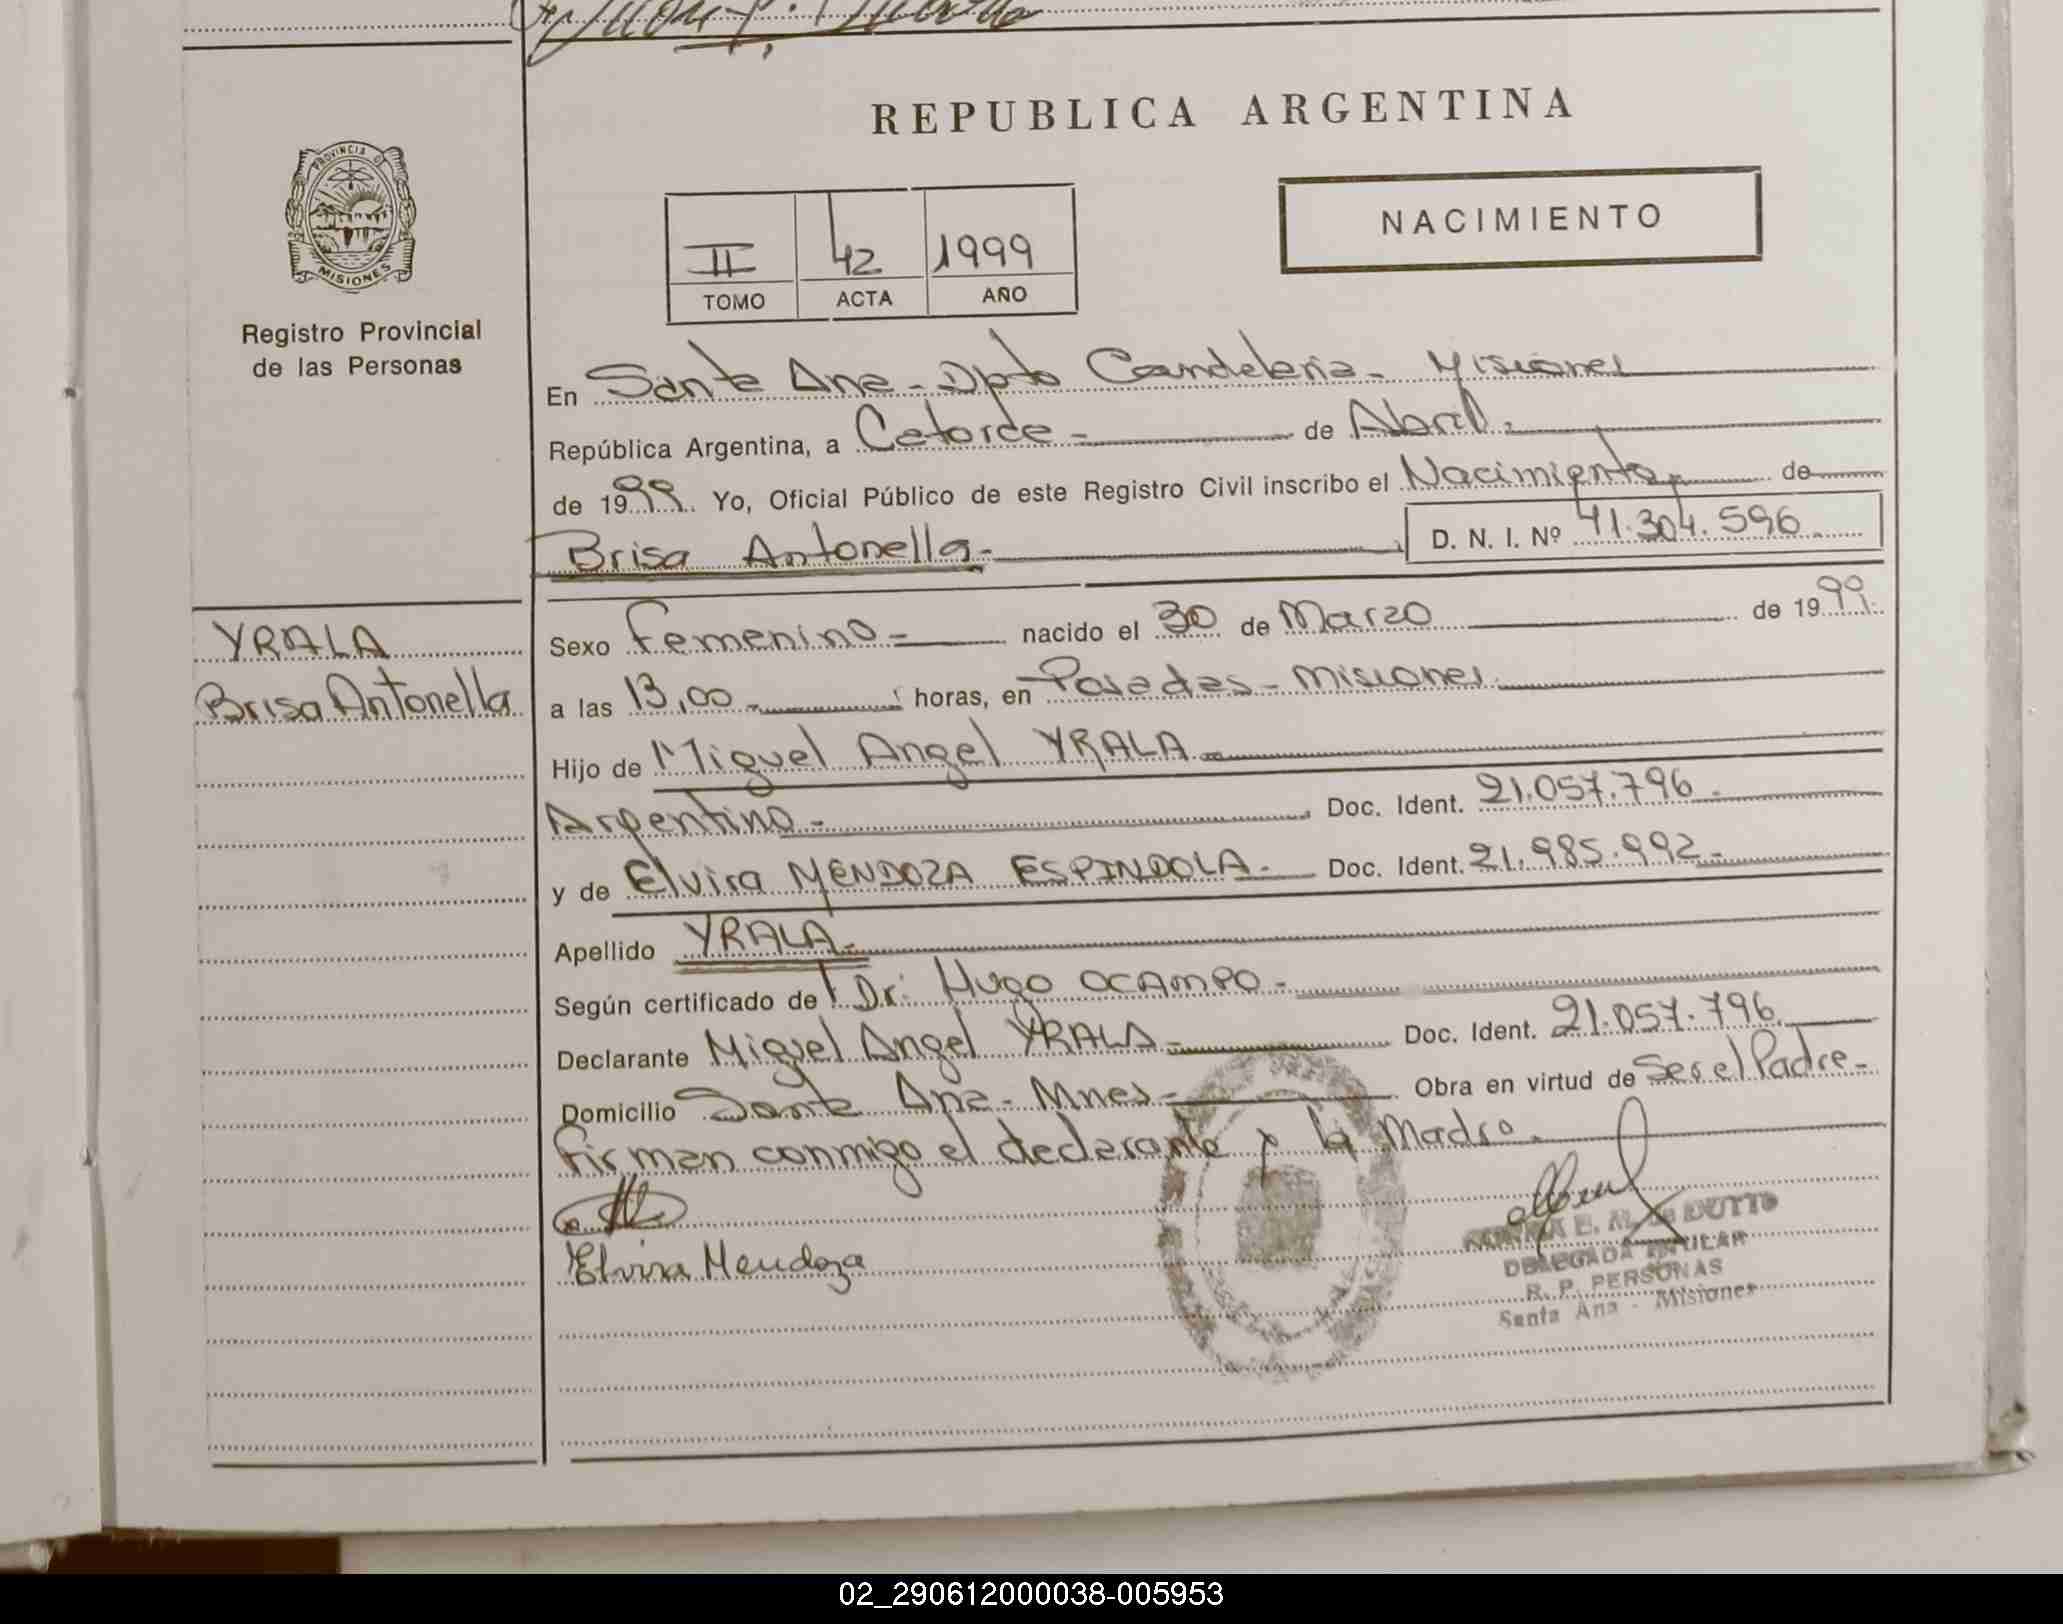 REPUBLICA ARGENTINA
PROVINCIA DE
MISIONES
Registro Provincial
de las Personas
NACIMIENTO
II 42 1999
TOMO ACTA AÑO
En Santa Ana - Dpto Candelaria - Misiones
República Argentina, a Catorce - de Abril.
de 1999. Yo, Oficial Público de este Registro Civil inscribo el Nacimiento de
Brisa Antonella - D. N. I. Nº 41.304.596
YRALA
Brisa Antonella
Sexo Femenino - nacido el 30 de Marzo de 1999.
a las 13,00 horas, en Posadas - Misiones.
Hijo de Miguel Angel YRALA -
Argentino - Doc. Ident. 21.057.796.
y de Elvira MENDOZA ESPINDOLA - Doc. Ident. 21.985.992 -
Apellido YRALA -
Según certificado de Dr. Hugo OCAMPO -
Declarante Miguel Angel YRALA - Doc. Ident. 21.057.796.
Domicilio Santa Ana - Mnes - Obra en virtud de Ser el Padre -
Firman conmigo el declarante y la Madre.
Elvira Mendoza
E. M. de DUTTO
DELEGADA TITULAR
R. P. PERSONAS
Santa Ana - Misiones
02_290612000038-005953